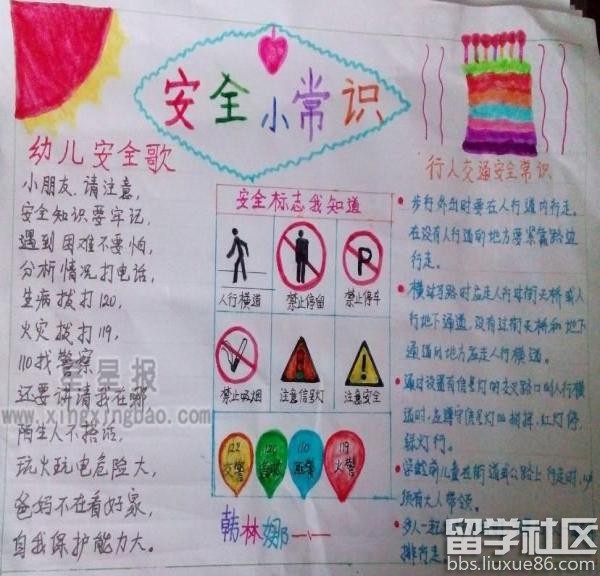 安全小常识
幼儿安全歌
小朋友,请注意,
安全知识要牢记,
遇到困难不要怕,
分析情况打电话,
生病拨打120,
火灾拨打119,
110找警察
还要讲请我在哪
陌生人不搭话,
玩火玩电危险大,
爸妈不在看好家,
自我保护能力大。
安全标志我知道
人行横道
禁止停留
禁止停车
P
禁止吸烟
注意信号灯
注意安全
122
交警
120
急救
110
匪警
119
火警
韩林娜
行人交通安全常识
步行外出时要在人行道内行走。
在没有人行道的地方要紧靠路边
行走。
横过马路时应走人行过街天桥或人
行地下通道,没有过街天桥和地下
通道的地方应走人行横道。
通过设置有信号灯的交叉路口或人行横
道时,应遵守信号灯的指挥,红灯停,
绿灯行。
学龄前儿童在街道或公路上行走时,
须有大人带领。
多人一起
排行走。
星星报
www.xingxingbao.com
留学社区
bbs.liuxue86.com